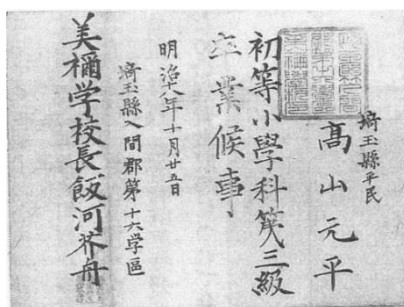 埼玉縣平民
髙山元平
初等小學科第三級
卒業候事
明治十八年十月廿五日
埼玉縣入間郡第十六学區
美禰学校長飯河芥舟